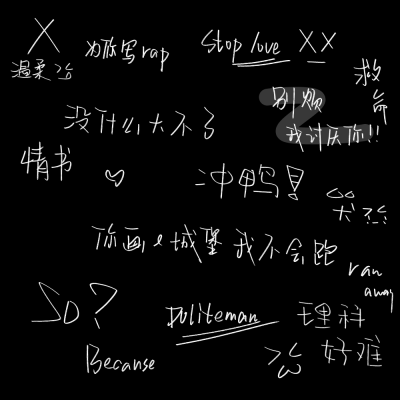 X
为你写rap
Stop love XX
温柔
救命
别烦
我讨厌你!!
没什么大不了
情书
冲鸭!
你画 城堡 我不会跑
ran away
So?
politeman
理科
好难
Because